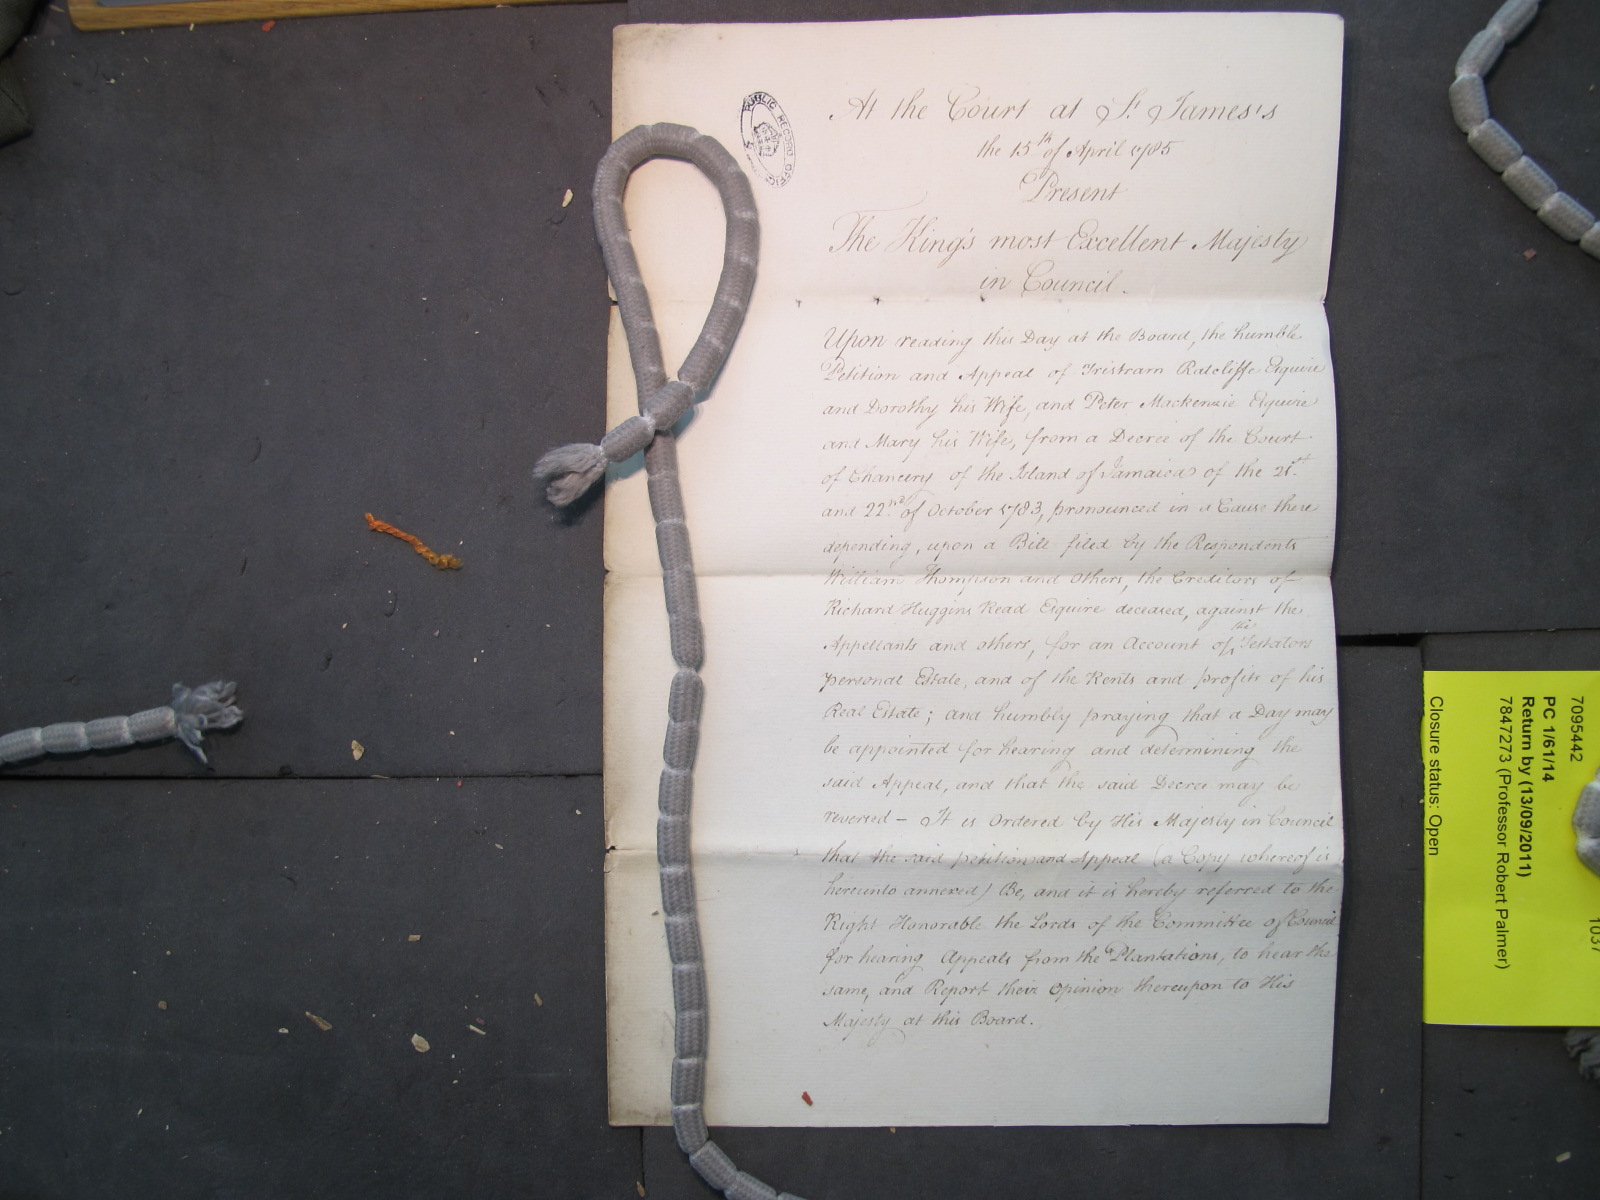 PUBLIC RECORD OFFICE
At the Court at St. James's
the 15th of April 1785
Present
The King's most Excellent Majesty
in Council.
Upon reading this Day at the Board, the humble
Petition and Appeal of Tristram Ratcliffe Esquire
and Dorothy his Wife, and Peter Mackenzie Esquire
and Mary his Wife, from a Decree of the Court
of Chancery of the Island of Jamaica of the 21st.
and 22nd. of October 1783, pronounced in a Cause there
depending, upon a Bill filed by the Respondents
William Thompson and others, the Creditors of
Richard Huggins Read Esquire deceased, against the
Appellants and others, for an Account of the Testators
personal Estate, and of the Rents and profits of his
Real Estate; and humbly praying that a Day may
be appointed for hearing and determining the
said Appeal, and that the said Decree may be
reversed – It is Ordered by His Majesty in Council
that the said petition and Appeal (a Copy whereof is
hereunto annexed) Be, and it is hereby referred to the
Right Honorable the Lords of the Committee of Council
for hearing Appeals from the Plantations, to hear the
same, and Report their Opinion thereupon to His
Majesty at this Board.
7095442
PC 1/61/14
Return by (13/09/2011)
7847273 (Professor Robert Palmer)
Closure status: Open
1037